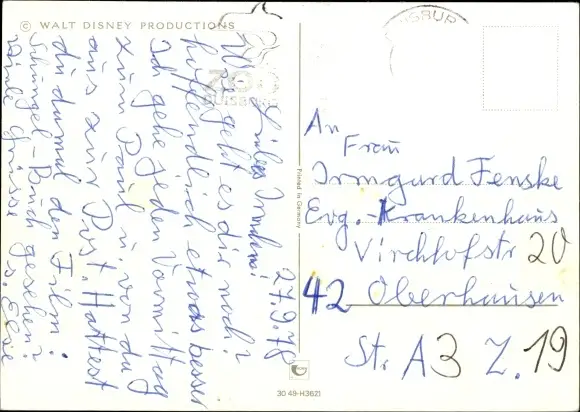 © WALT DISNEY PRODUCTIONS
27.9.78
Liebes Irmchen!
Wie geht es dir noch?
hoffendlich etwas besser
Ich gehe jeden Vormittag
zum Paul u. von da
aus zur Post. Hattest
du damal den Film:
Schüngel-Buch gesehen?
Viele Grüsse
Ts. Else
ZOO
DUISBURG
Printed in Germany
30 49-H3621
An
Frau
Irmgard Fenske
Evg.-Krankenhaus
Virchtofstr 20
42 Oberhausen
Str. A3 Z. 19